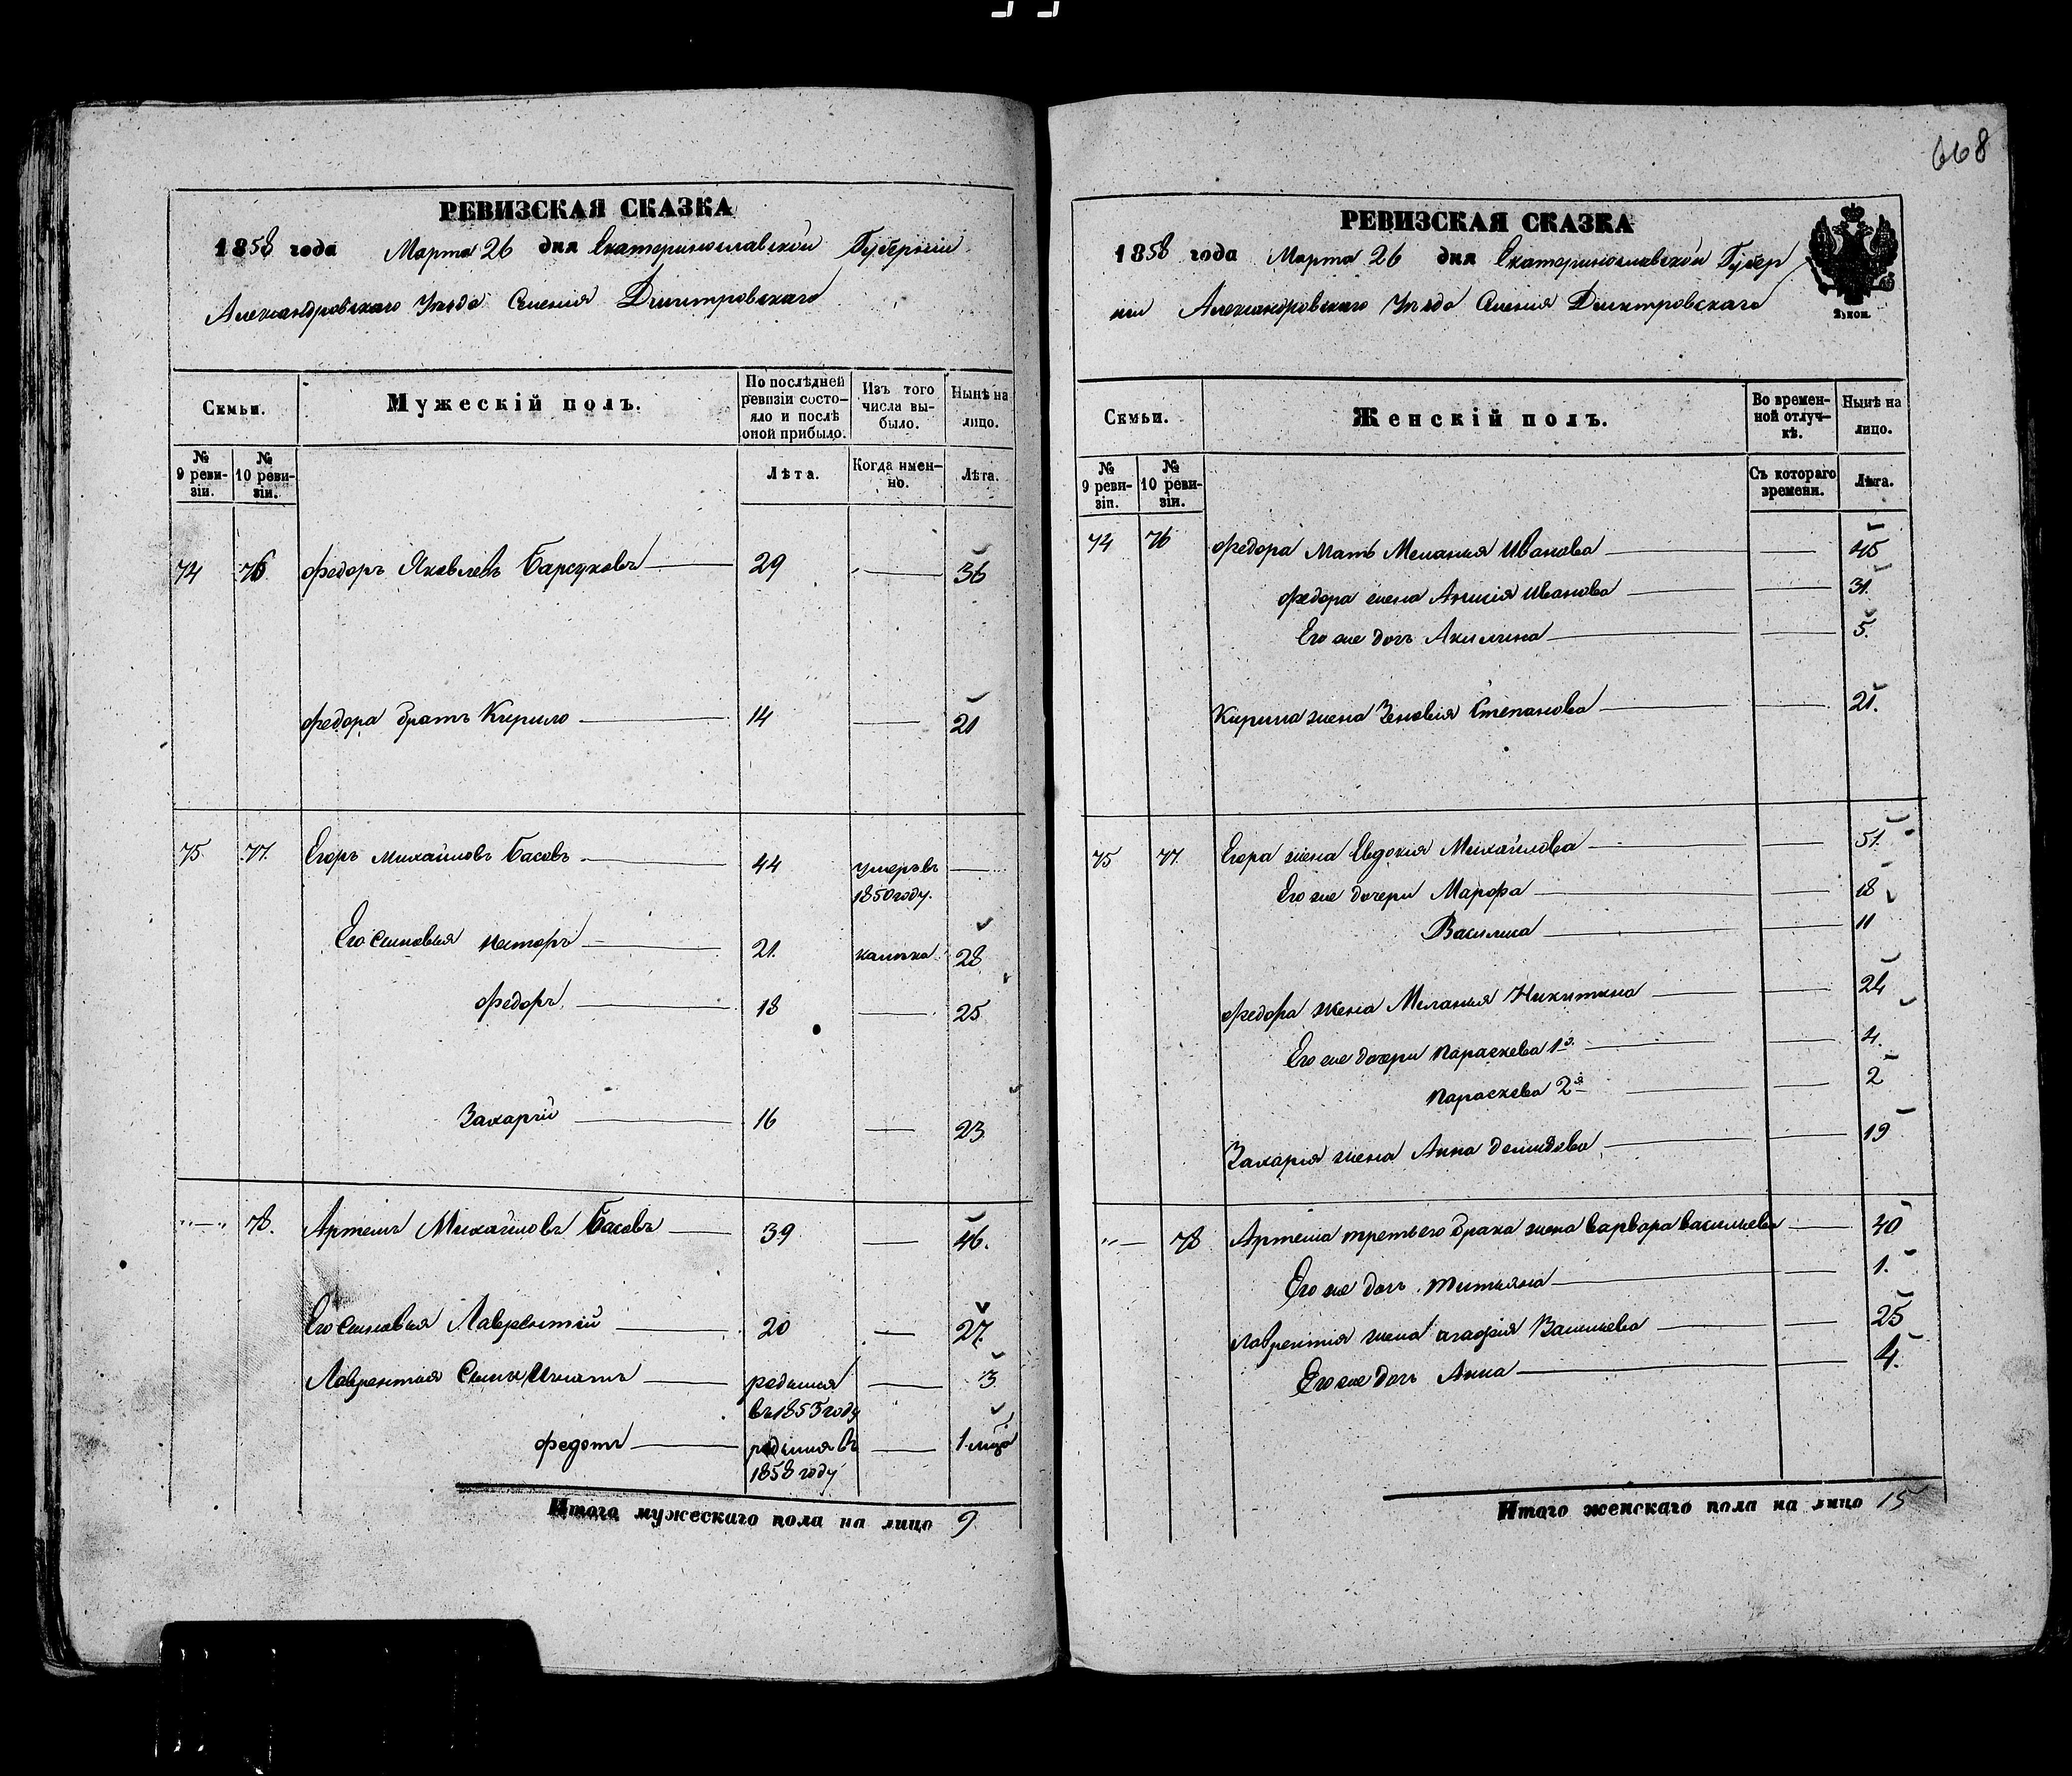 668
РЕВИЗСКАЯ СКАЗКА
1858 года Марта 26 дня Екатеринославской Губерніи
Александровскаго Уѣзда Селенія Дмитровскаго
Семьи.
Мужескій полъ.
По послѣдней ревизіи состояло и послѣ оной прибыло.
Изъ того числа выбыло.
Нынѣ на лицо.
№ 9 ревизіи.
№ 10 ревизіи.
Лѣта.
Когда именно.
Лѣта.
74 76 Федоръ Яковлевъ Барсуковъ 29 36
Федора братъ Кирило 14 21
75 77. Егоръ Михайловъ Басовъ 44 умеръ въ
1850 году.
Его Сыновья Несторъ 21. калѣка 28
Федоръ 18 25
Захарій 16 23
"—" 78. Артемъ Михайловъ Басовъ 39 46.
Его Сыновья Лаврентій 20 27.
Лаврентия Сынъ Игнатъ родился 3.
въ 1855 году
Федотъ родился въ 1 мѣс.
1858 году
Итого мужескаго пола на лицо 9
РЕВИЗСКАЯ СКАЗКА
1858 года Марта 26 дня Екатеринославской Губер
ніи Александровскаго Уѣзда Селенія Дмитровскаго
2 коп.
Семьи.
Женскій полъ.
Во временной отлучкѣ.
Нынѣ на лицо.
№ 9 ревизіи.
№ 10 ревизіи.
Съ котораго времени.
Лѣта.
74 76 Федора мать Меланья Иванова 45
Федора жена Анисія Иванова 31.
Его же дочь Акилина 5.
Кирила жена Зеновія Степанова 21.
75 77. Егора жена Евдокія Михайлова 51.
Его же дочери Марфа 18
Василиса 11
Федора жена Меланья Никитина 24
Его же дочери Параскева 1я 4.
Параскева 2я 2
Захарія жена Анна Демидова 19
"— 78 Артема третьего брака жена Варвара Васильева 40
Его же дочь Титьяна 1.
Лаврентія жена Агафія Васильева 25
Его же дочь Анна 4.
Итого женскаго пола на лицо 15